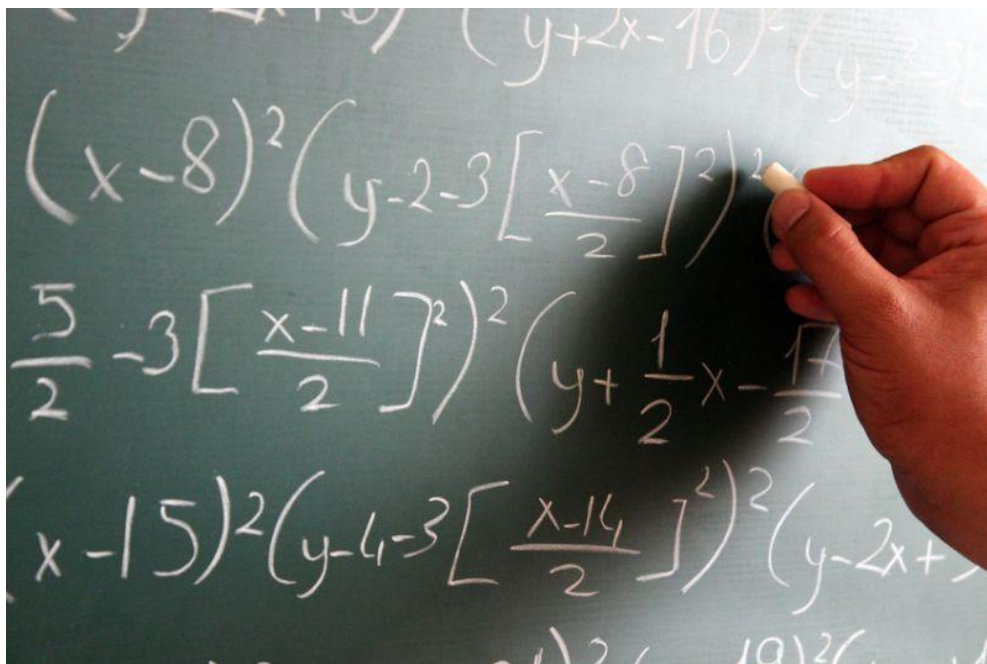 (y+2x-16)² (y-2-3[
(x-8)²(y-2-3[(x-8)/2]²)²
5/2 -3[(x-11)/2]²)²(y+1/2 x-17/2
x-15)²(y-4-3[(x-14)/2]²)²(y-2x+
)²( 19)²(